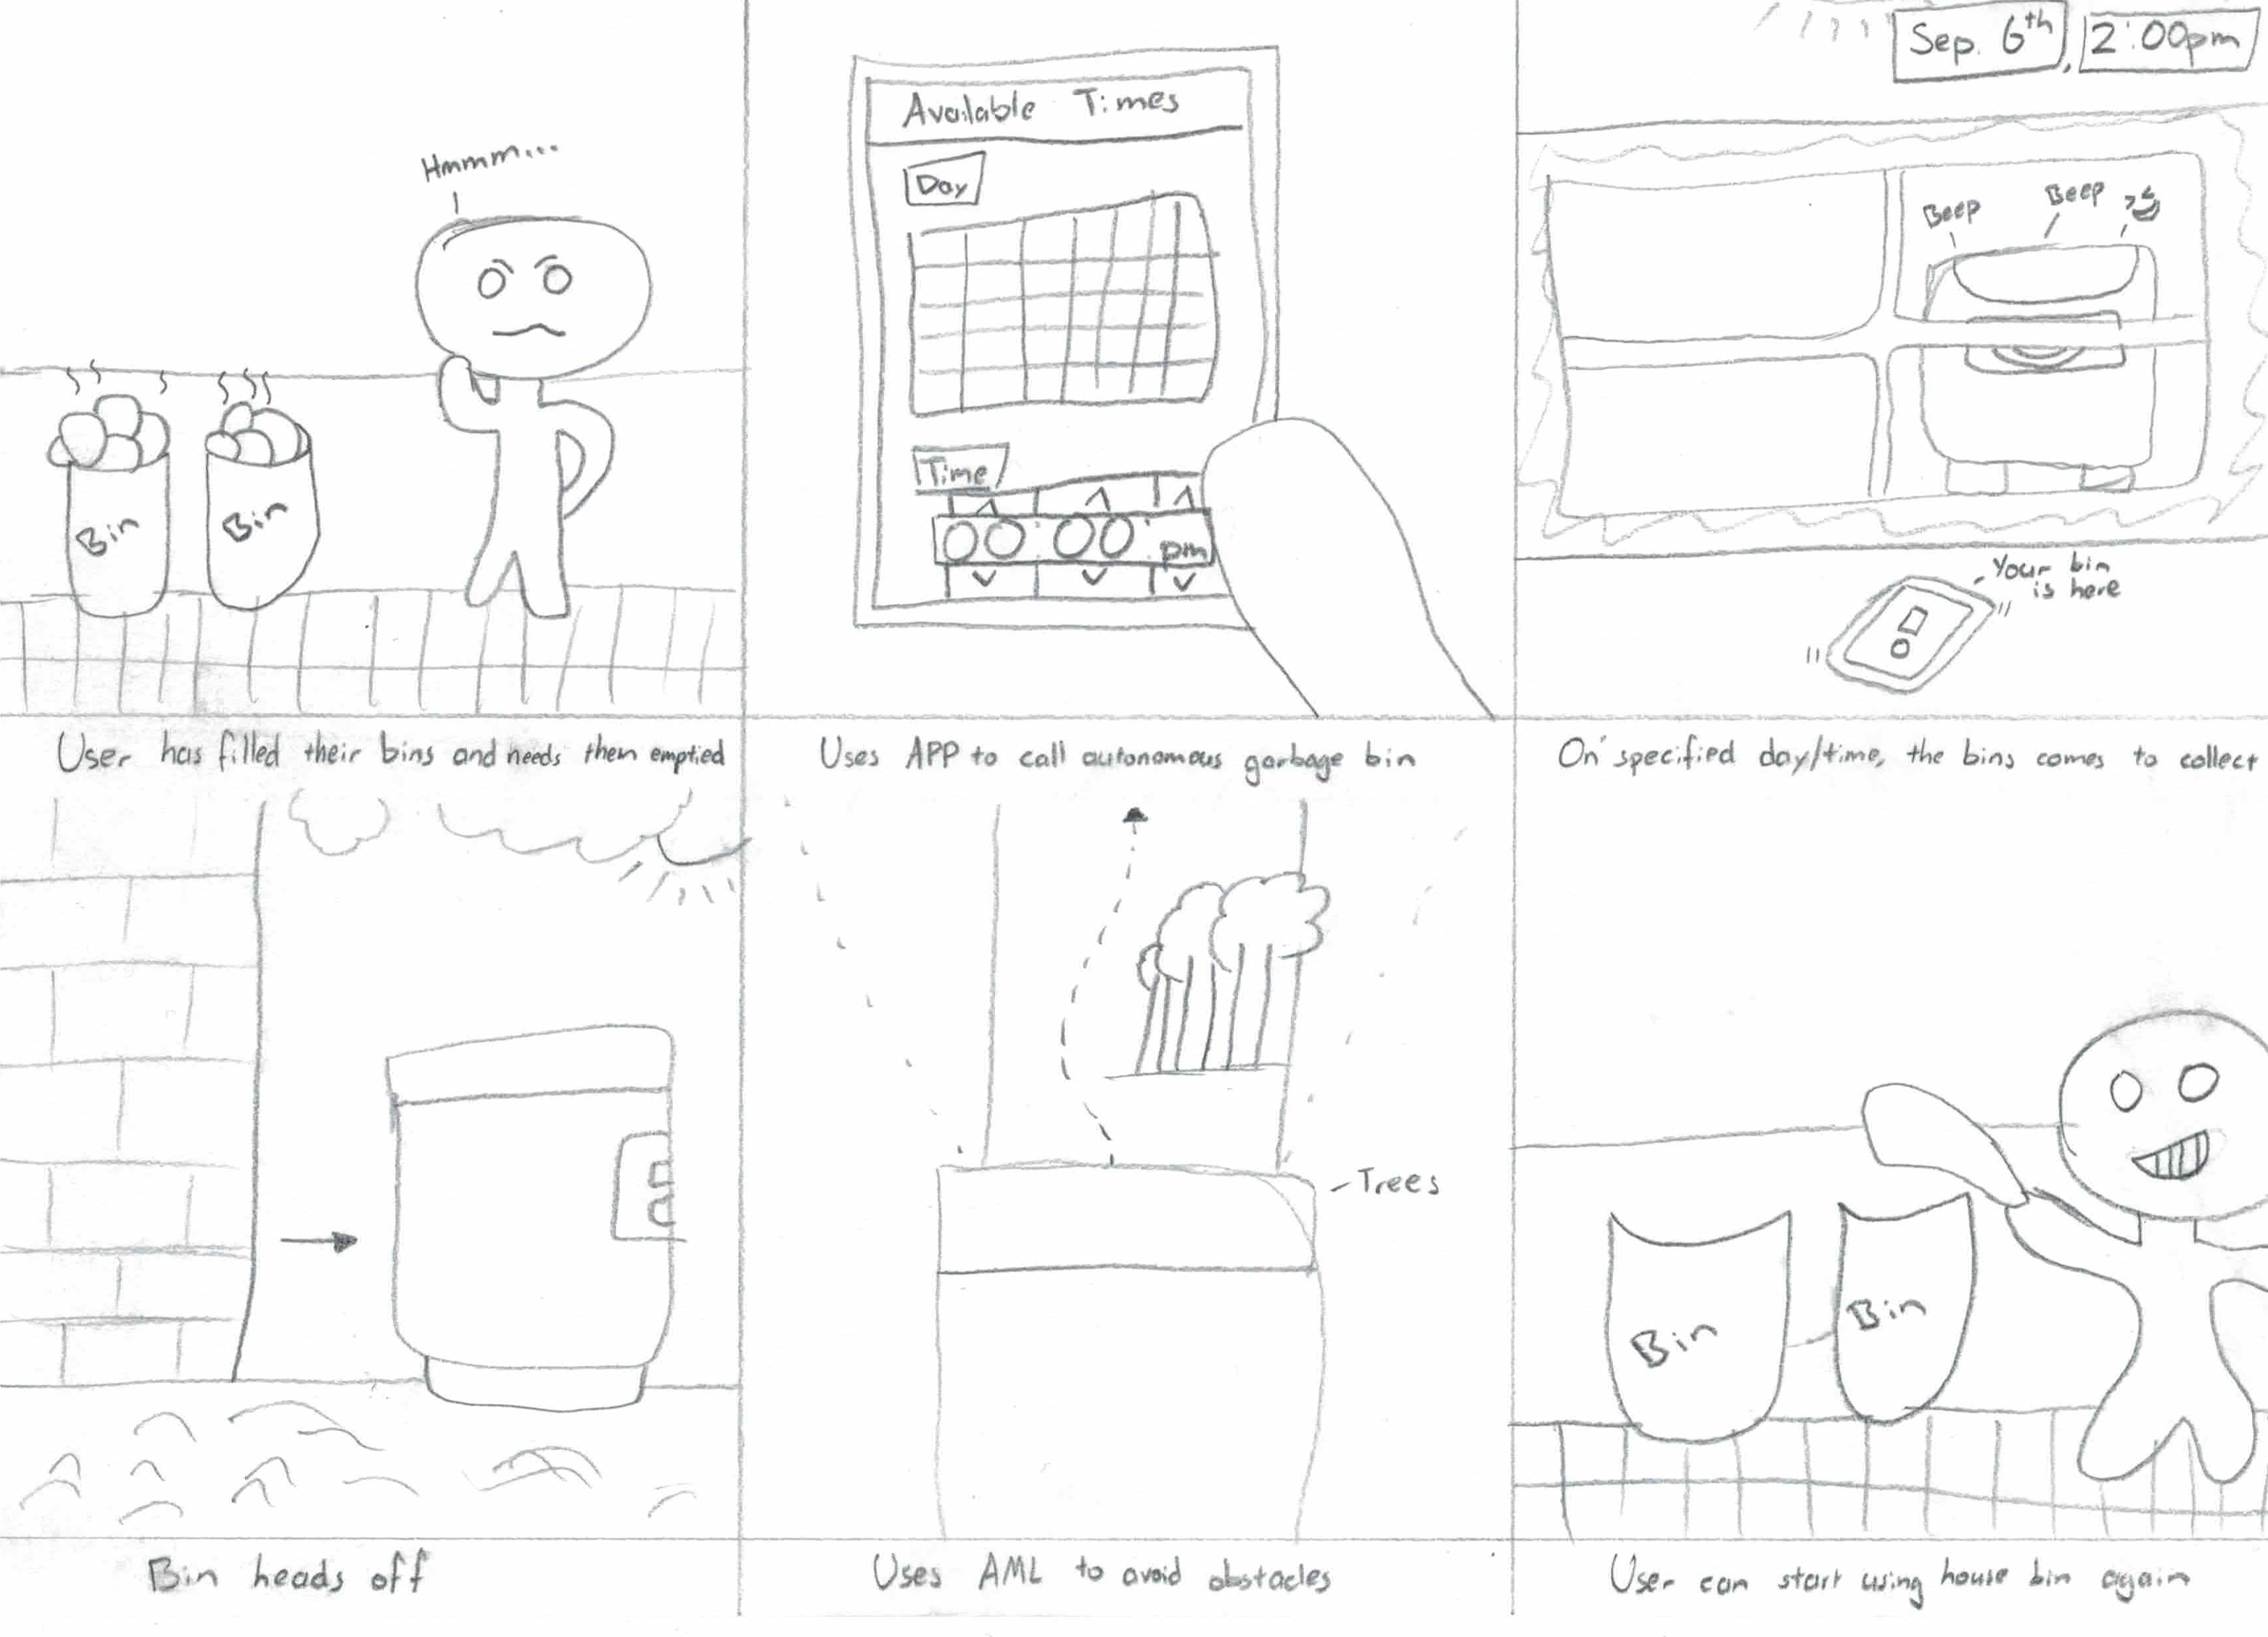 Hmmm...
Bin
Bin
User has filled their bins and needs then emptied
Available Times
Day
Time
00:00: pm
Uses APP to call autonomous garbage bin
Sep. 6th, 2:00pm
Beep
Beep
Your bin
is here
On specified day/time, the bins comes to collect
Bin heads off
Trees
Uses AML to avoid obstacles
Bin
Bin
User can start using house bin again